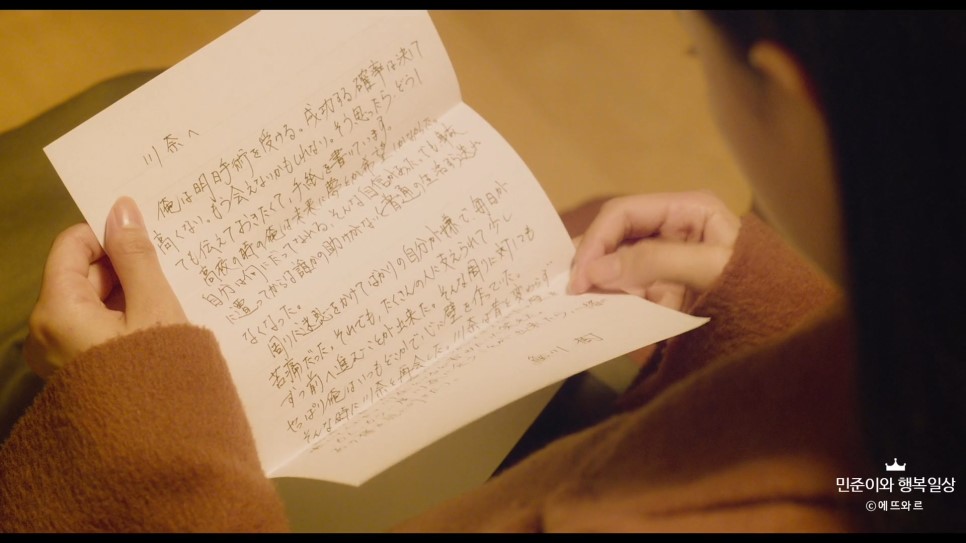 川奈へ
俺は明日手術を受ける。成功する確率は決して
高くない。もう会えないかもしれない。そう思ったら、どうし
ても伝えておきたくて、手紙を書いています。
高校の時の俺は未来に夢と希望
自分は何にだってなれる、そんな自信があった。でも事故
に遭ってからは誰かの助けがないと普通の生活も送れ
なくなった。
周りに迷惑をかけてばかりの自分が嫌で、毎日が
苦痛だった。それでも、たくさんの人に支えられて少し
ずつ前へ進むことが出来た。そんな周りに対しても
やっぱり俺はいつもどこかで心に壁を作っていた。
そんな時に川奈と再会した。川奈は昔と変わらず
鮎川 樹
민준이와 행복일상
©에뜨와르